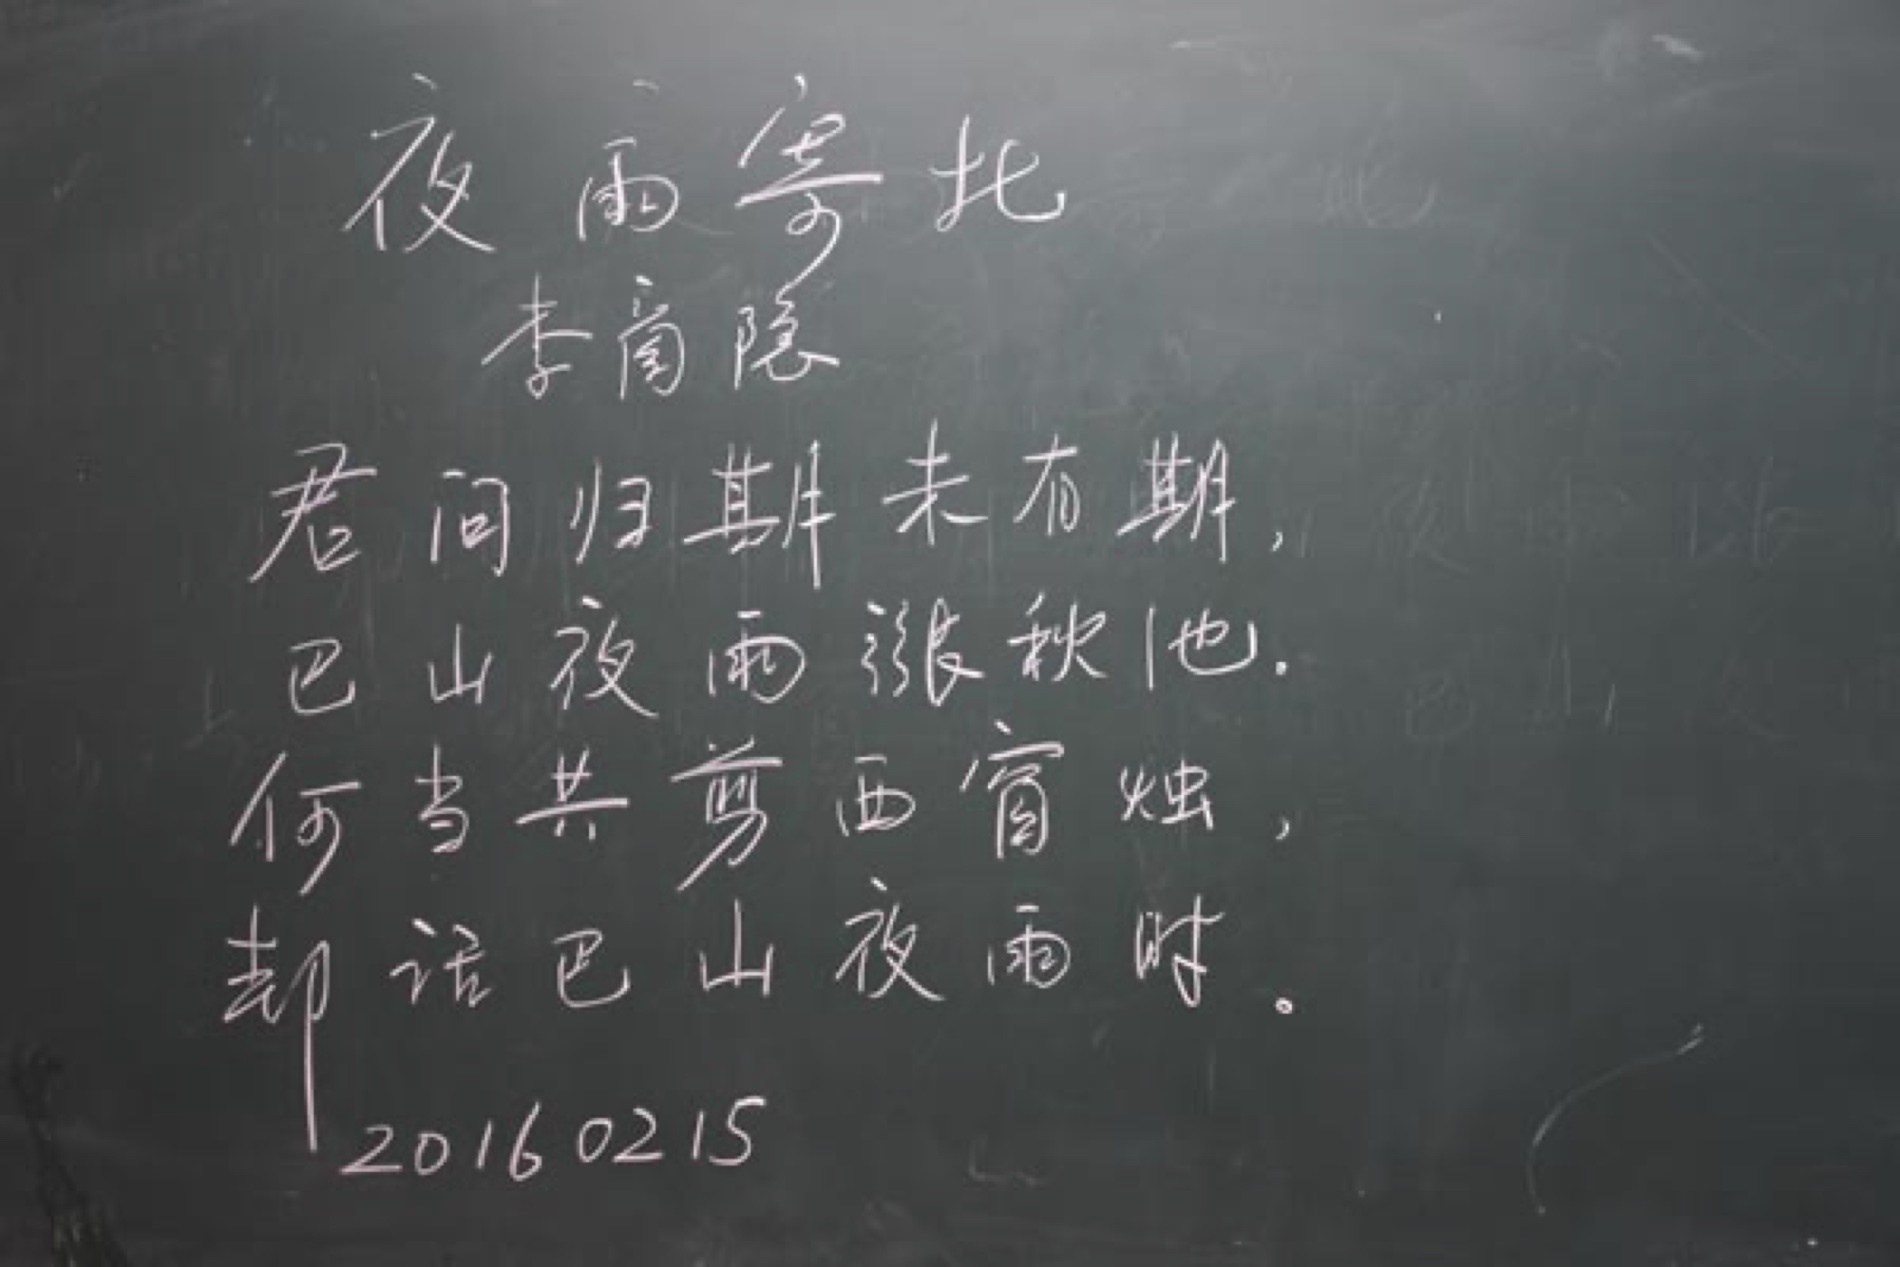 夜雨寄北
李商隐
君问归期未有期，
巴山夜雨漲秋池.
何当共剪西窗烛，
却话巴山夜雨时。
20160215